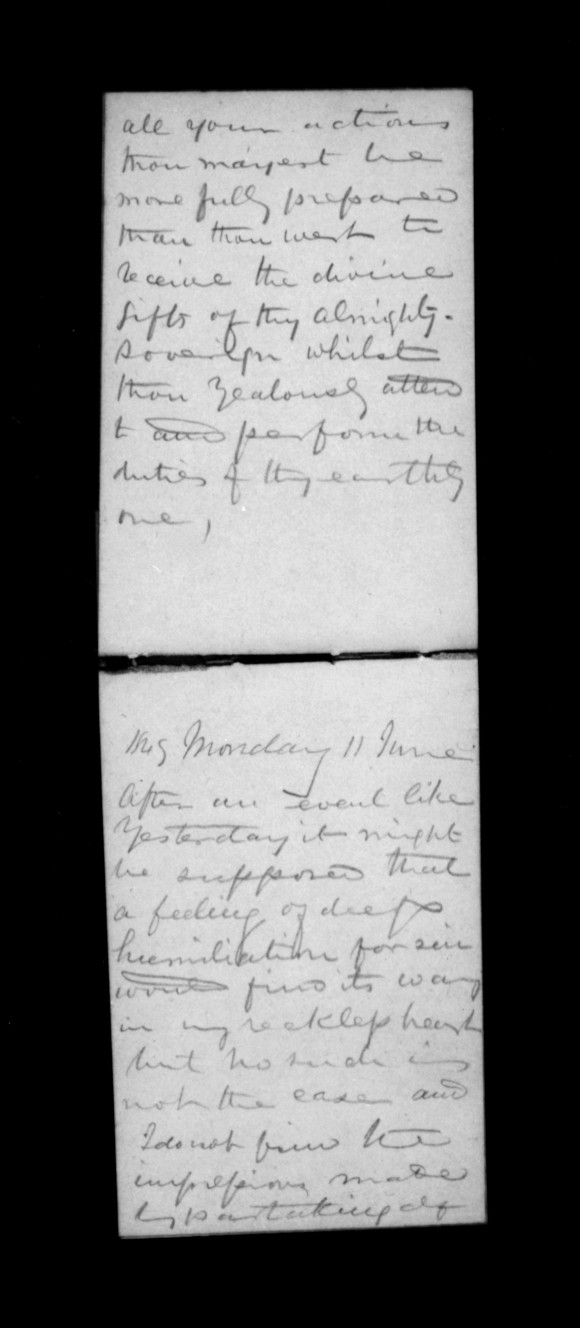 all your actions
thou mayest be
more fully prepared
than thou wert to
receive the divine
Gifts of thy Almighty.
Sovereign whilst
thou zealously attend
to and perform the
duties of thy earthly
one,
Monday 11 June
After an event like
Yesterday it might
be supposed that
a feeling of deep
humiliation for sin
would find its way
in my reckless heart
but no such is
not the case and
I do not find the
impressions made
by partaking of